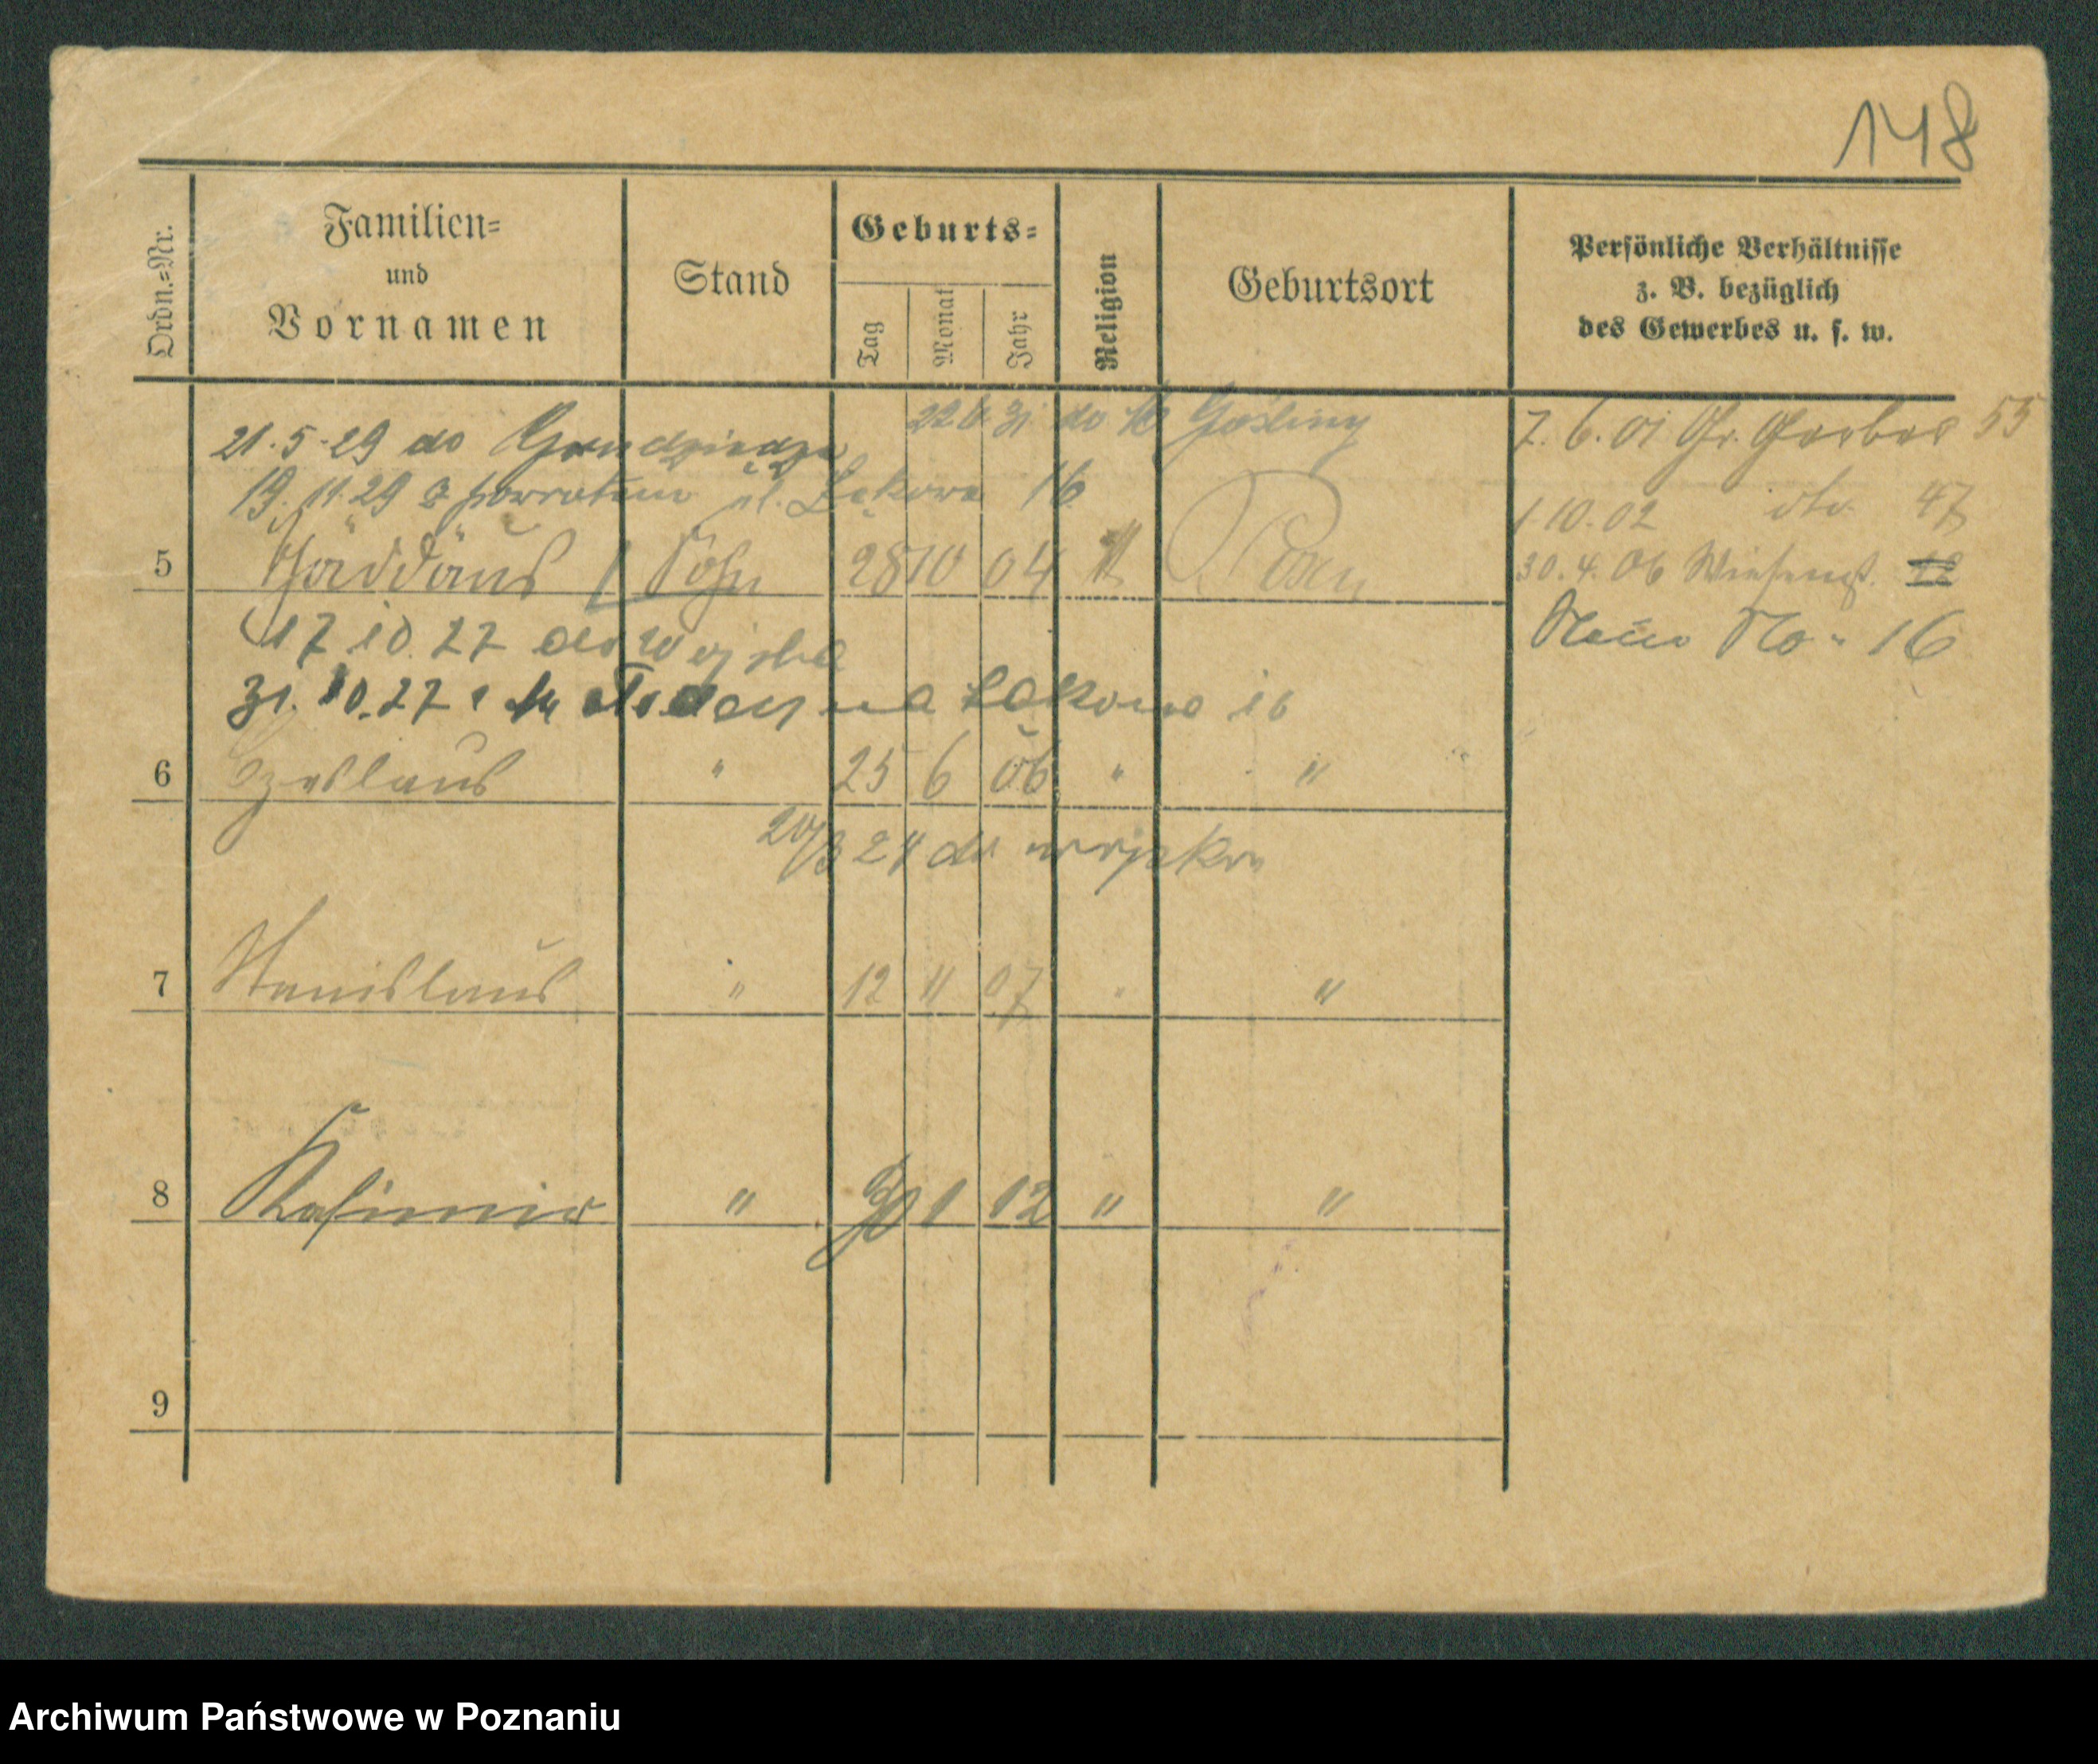 148
Ordn.=Nr.
Familien=
und
Vornamen
Stand
Geburts=
Tag
Monat
Jahr
Religion
Geburtsort
Persönliche Verhältnisse
z. B. bezüglich
des Gewerbes u. s. w.
21.5.29 do Grudziądza
31 do Gośliny
19.11.29 z powrotem ul. Łąkowa 16
5 Thaddäus Sohn 28 10 04 Posen
17 10 27 do Wojska
31.10.27 na Łąkowa 16
6 Czeslaus " 25 6 06 " "
20/3 24 do wojska
7 Stanislaus " 12 11 07 " "
8 Kasimir " 30 1 12 " "
9
7.6.01 Gr. Gerber 55
1.10.02 dto. 47
30.4.06 Wiesenst.
Neue No. 16
Archiwum Państwowe w Poznaniu